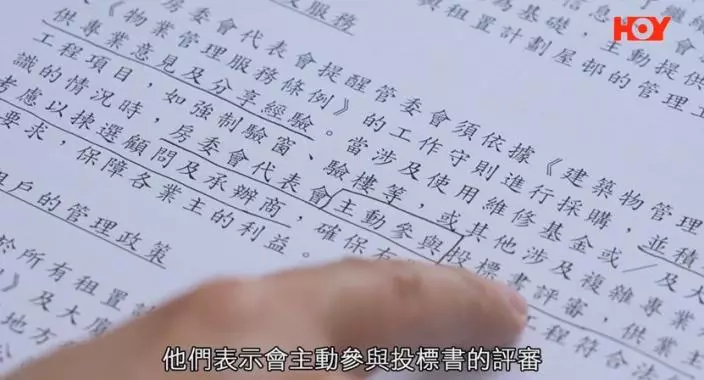 HOY
為基礎，主動提供
與租置計劃屋邨的管理工
服務
房委會代表會提醒管委會須依據《建築物管理
《物業管理服務條例》的工作守則進行採購，並積
供專業意見及分享經驗。當涉及使用維修基金或／及大
工程項目，如強制驗窗、驗樓等，或其他涉及複雜專業
識的情況時，房委會代表會主動參與投標書評審，供業主
考慮以揀選顧問及承辦商，確保有 工程符合法
要求，保障各業主的利益。
戶的管理政策
於所有租置
》及大廈
地方
他們表示會主動參與投標書的評審